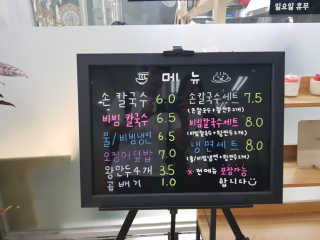 일요일 휴무
메뉴
손칼국수 6.0
비빔칼국수 6.5
물/비빔냉면 6.5
오징어덮밥 7.0
왕만두4개 3.5
곱배기 1.0
손칼국수세트 7.5
(손칼국수+왕만두2개)
비빔칼국수세트 8.0
(비빔칼국수+왕만두2개)
냉면세트 8.0
(물/비빔냉면+왕만두2개)
※전메뉴 포장가능
합니다